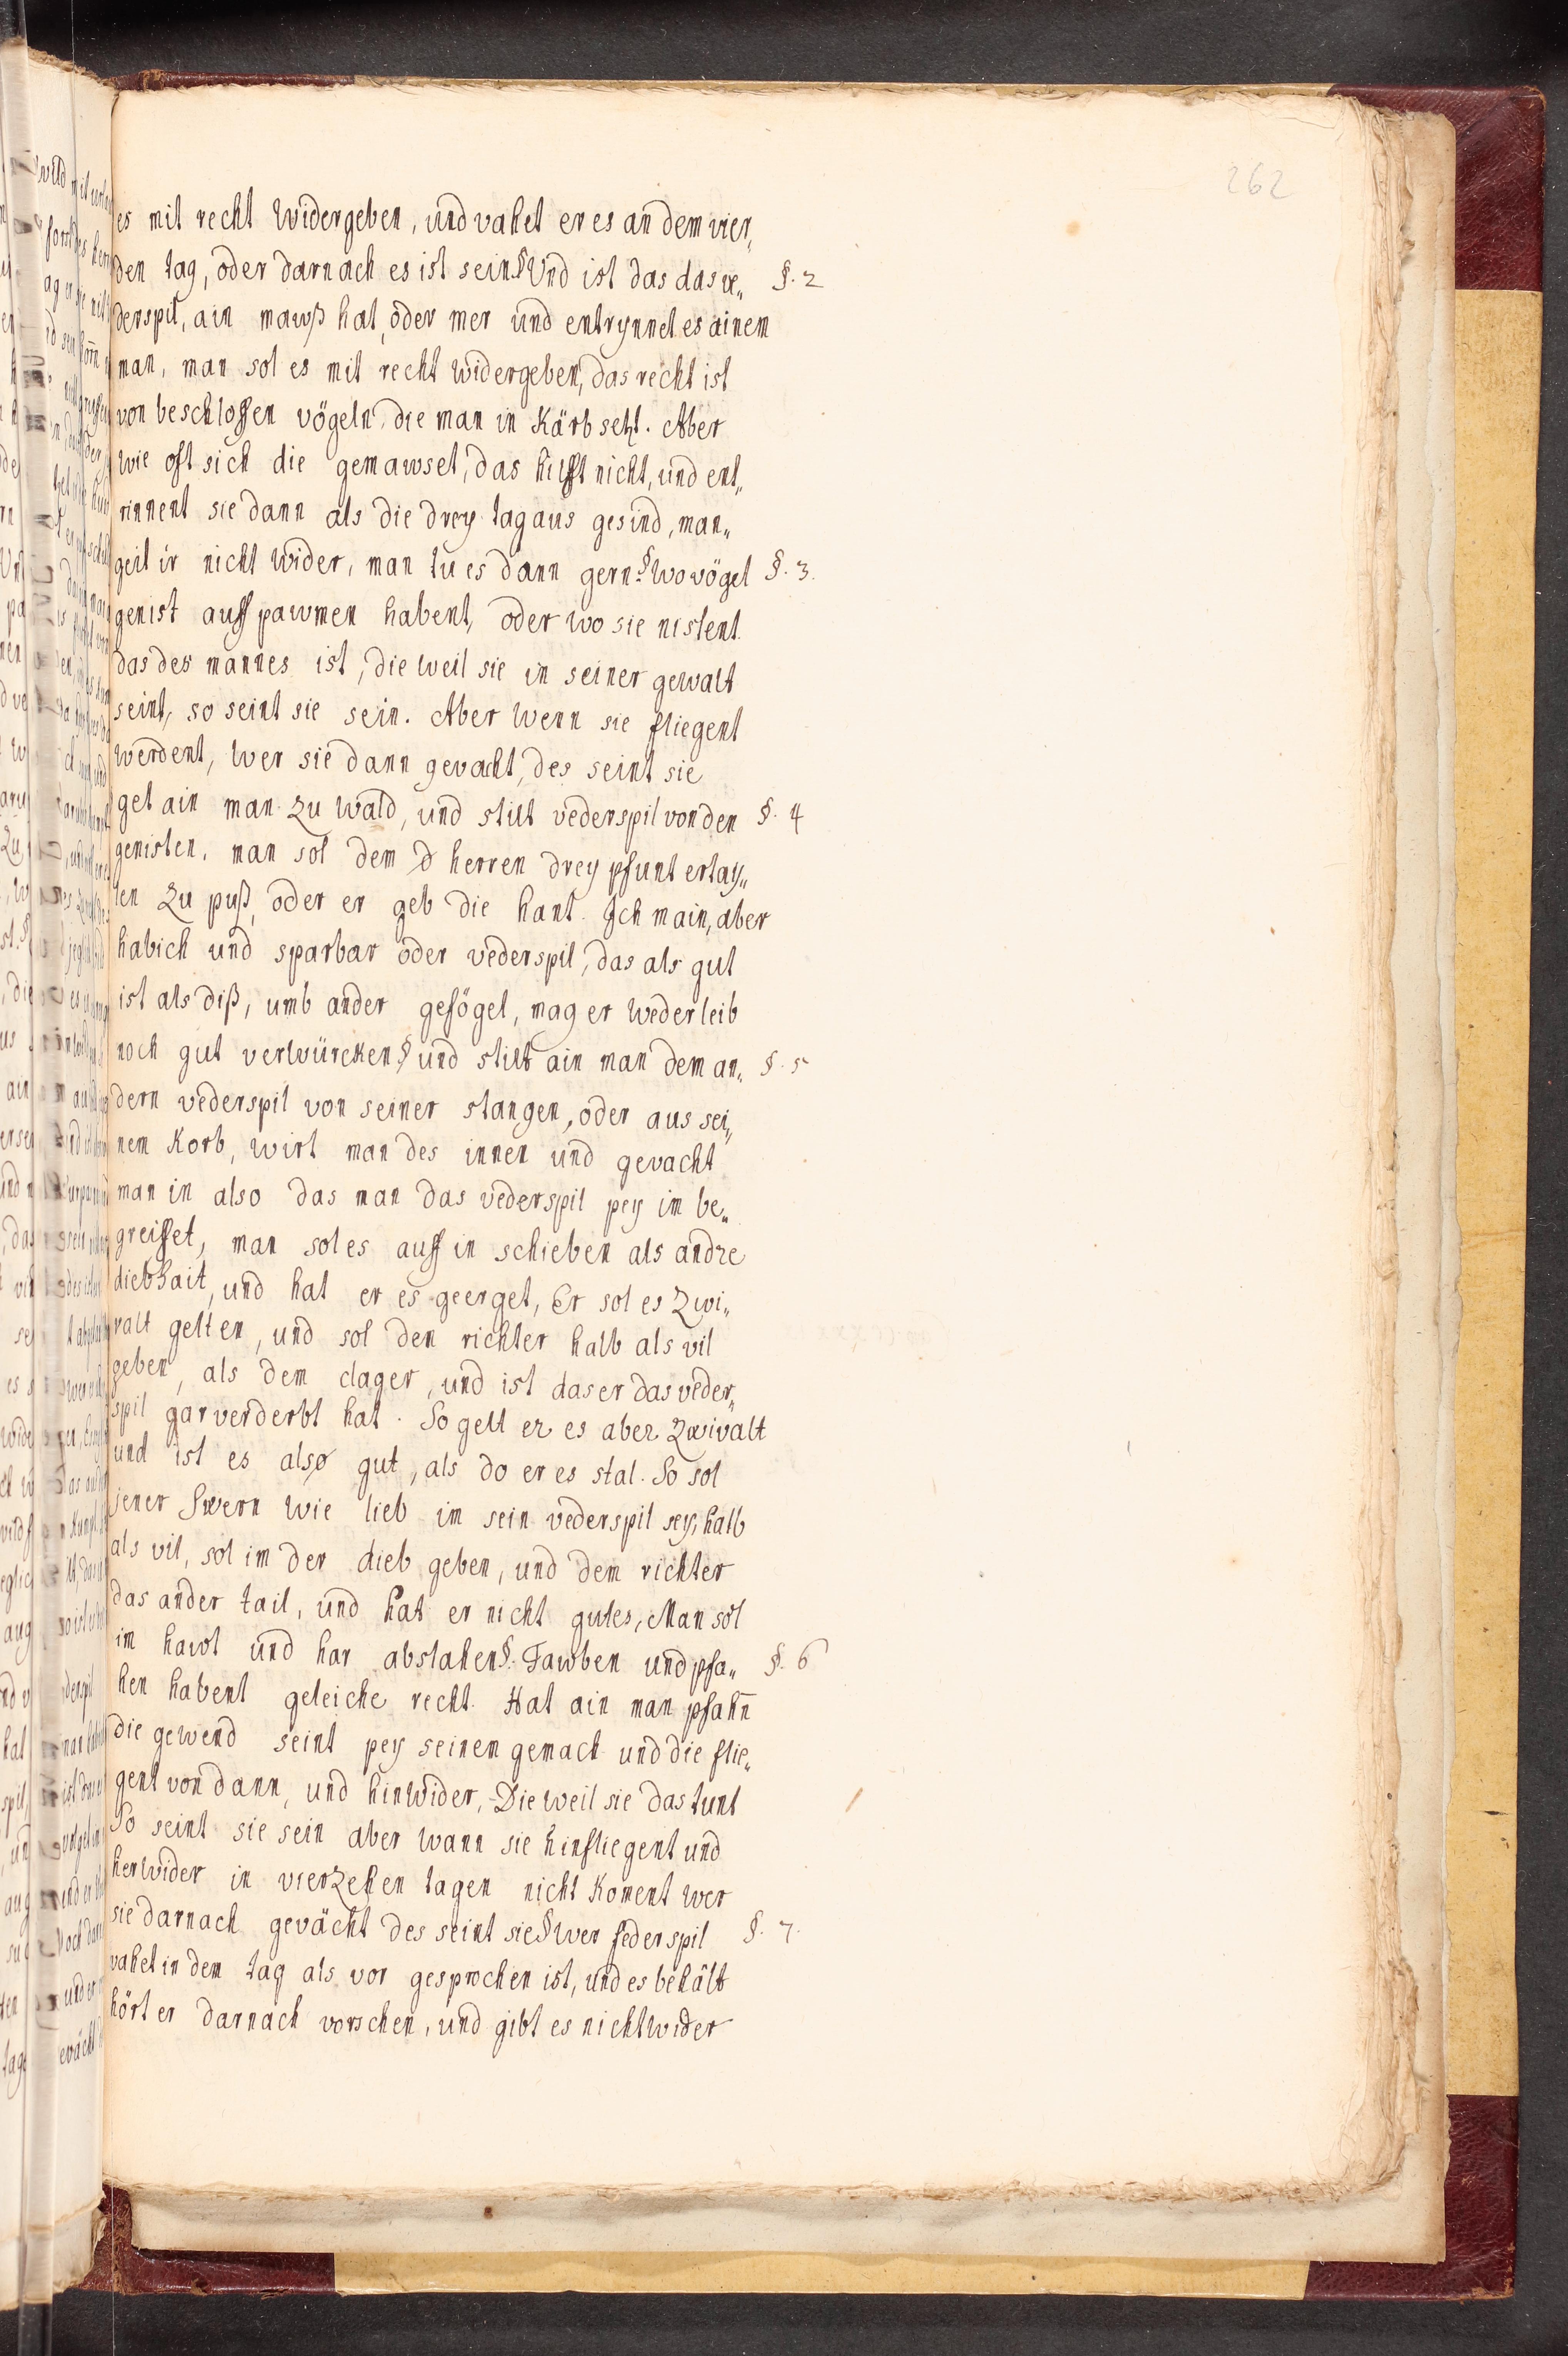 262
es mit recht widergeben, und vahet er es an dem vier„
den tag, oder darnach es ist sein § Und ist das das ve„ §. 2
derspil, ain mawß hat, oder mer und entrynnet es ainem
man, man sol es mit recht widergeben, das recht ist
von beschlossen vögeln, die man in Kärb setzt. Aber
wie oft sich die gemawset, das hilfft nicht, und ent„
rinnent sie dann als die drey tag aus gesind, man„
geit ir nicht wider, man tu es dann gern. § wo vögel §. 3.
genist auff pawmen habent, oder wo sie nistent
das des mannes ist, die weil sie in seiner gewalt
seint, so seint sie sein. Aber wenn sie fliegent
werdent, wer sie dann gevacht, des seint sie
get ain man zu wald, und stilt vederspil von den §. 4
genisten, man sol dem herren drey pfunt ertay„
len zu puß, oder er geb die hant. Ich main, aber
habich und sparbar oder vederspil, das als gut
ist als diß, umb ander gefögel, mag er weder leib
noch gut verwürcken § und stilt ain man dem an„ §. 5
dern vederspil von seiner stangen, oder aus sei„
nem Korb, wirt man des innen und gevacht
man in also das man das vederspil pey im be„
greiffet, man sol es auff in schieben als andre
diebhait, und hat er es geerget, Er sol es zwi„
valt gelten, und sol den richter halb als vil
geben, als dem clager, und ist das er das veder„
spil gar verderbt hat. So gelt er es aber zwivalt
und ist es also gut, als do er es stal. So sol
jener Swern wie lieb im sein vederspil sey, halb
als vil, sol im der dieb geben, und dem richter
das ander tail, und hat er nicht gutes, Man sol
im hawt und har abslahen §. Tawben und pfa„ §. 6
hen habent geleiche recht. Hat ain man pfahn̄
die gewend seint pey seinem gemach und die flie„
gent von dann, und hinwider, Die weil sie das tunt
So seint sie sein aber wann sie hinfliegent und
herwider in vierzehen tagen nicht Koment wer
sie darnach gevächt des seint sie § wer federspil §. 7.
vahet in dem tag als vor gesprochen ist, und es behält
hört er darnach vorschen, und gibt es nicht wider